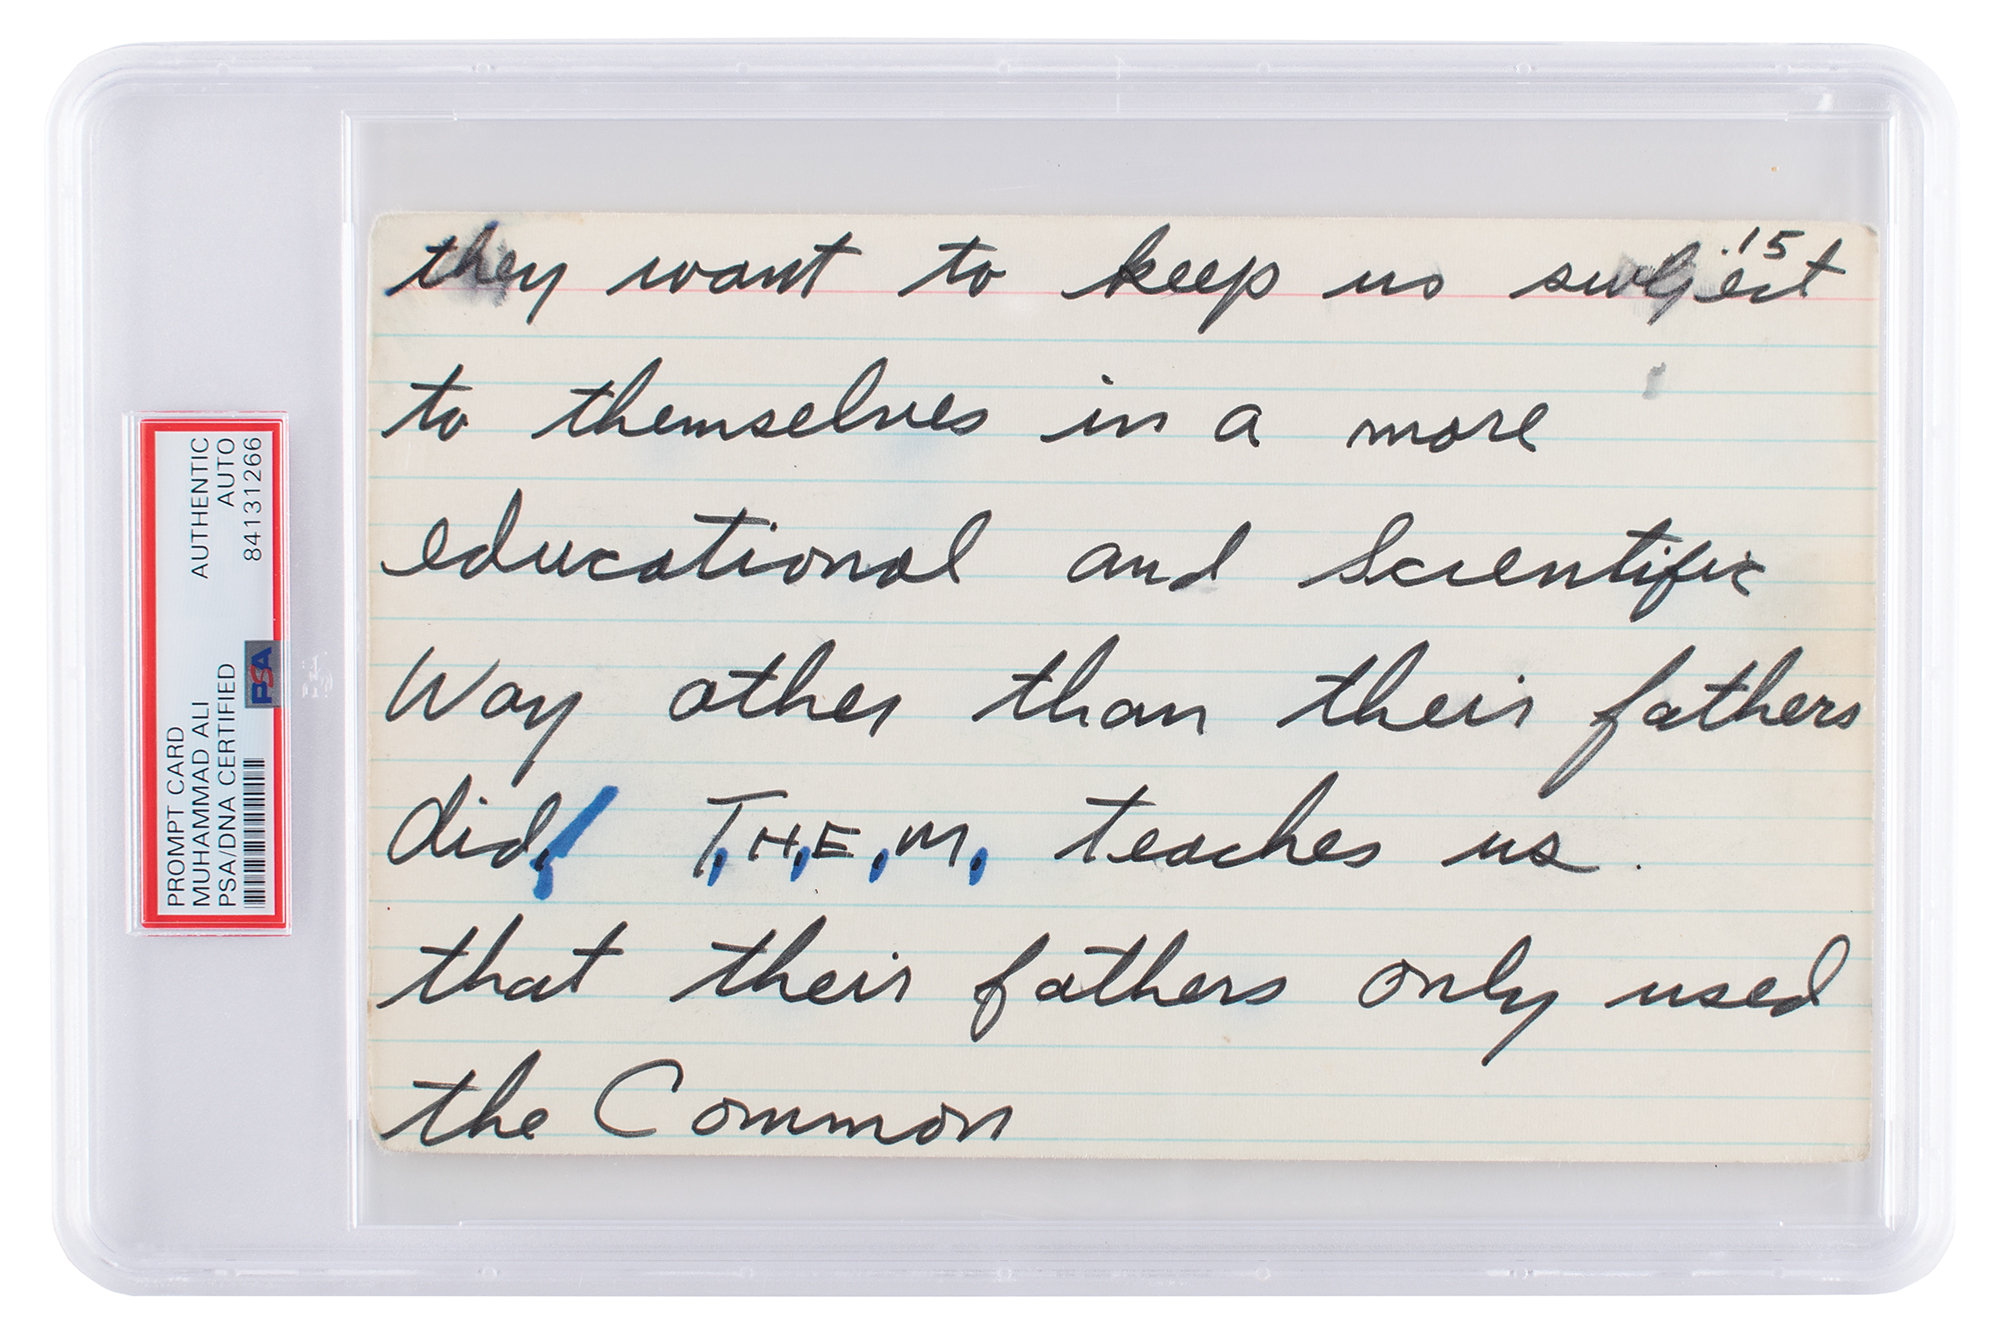 .15
they want to keep us subject
to themselves in a more
educational and Scientific
Way other than their fathers
did, T.H.E.M. teaches us.
that their fathers only used
the Common
PROMPT CARD AUTHENTIC
MUHAMMAD ALI AUTO
PSA/DNA CERTIFIED 84131266
PSA